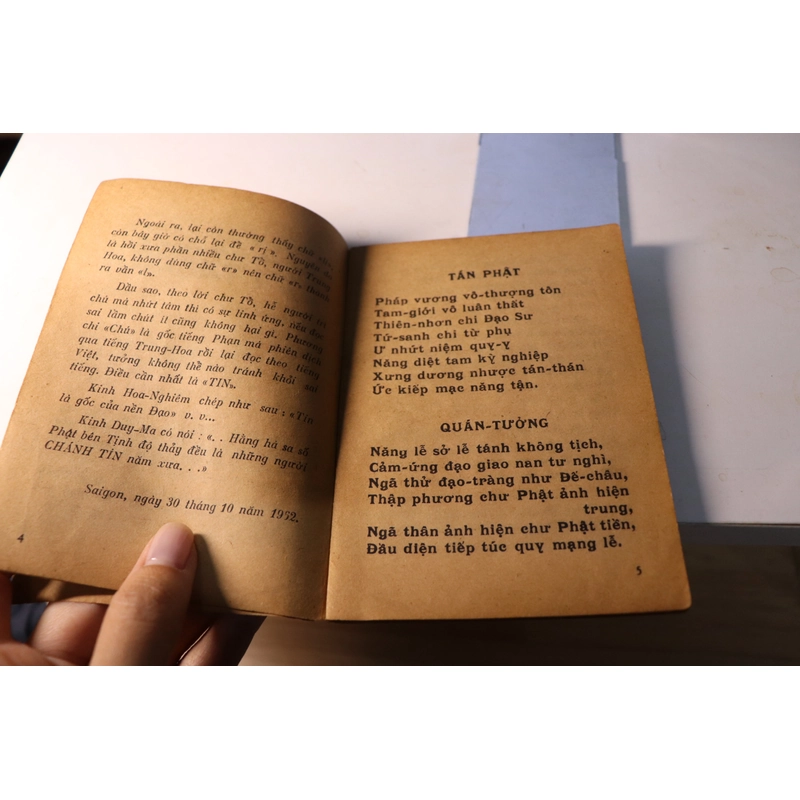 Ngoài ra, lại còn thường thấy chữ
còn bây giờ có chỗ lại để « rị ». Nguyên do
là hồi xưa phần nhiều chư Tổ, người Trung
Hoa, không dùng chữ «r» nên chữ «r» thành
ra vần «l».
Dầu sao, theo lời chư Tổ, hễ người trì
chú mà nhứt tâm thì có sự linh ứng, nếu đọc
sai lầm chút ít cũng không hại gì. Phương
chi «Chú» là gốc tiếng Phạn mà phiên dịch
qua tiếng Trung-Hoa rồi lại đọc theo tiếng
Việt, tưởng không thể nào tránh khỏi sai
tiếng. Điều cần nhất là «TIN».
Kinh Hoa-Nghiêm chép như sau : «Tin
là gốc của nền Đạo» v. v...
Kinh Duy-Ma có nói : «. . Hằng hà sa số
Phật bên Tịnh độ thảy đều là những người
CHÁNH TÍN năm xưa. . .»
Saigon, ngày 30 tháng 10 năm 1962.
4
TÁN PHẬT
Pháp vương vô-thượng tôn
Tam-giới vô luân thất
Thiên-nhơn chi Đạo Sư
Tứ-sanh chi từ phụ
Ư nhứt niệm quy-y
Năng diệt tam kỳ nghiệp
Xưng dương nhược tán-thán
Ức kiếp mạc năng tận.
QUÁN-TƯỞNG
Năng lễ sở lễ tánh không tịch,
Cảm-ứng đạo giao nan tư nghì,
Ngã thử đạo-tràng như Đế-châu,
Thập phương chư Phật ảnh hiện
trung,
Ngã thân ảnh hiện chư Phật tiền,
Đầu diện tiếp túc quy mạng lễ.
5